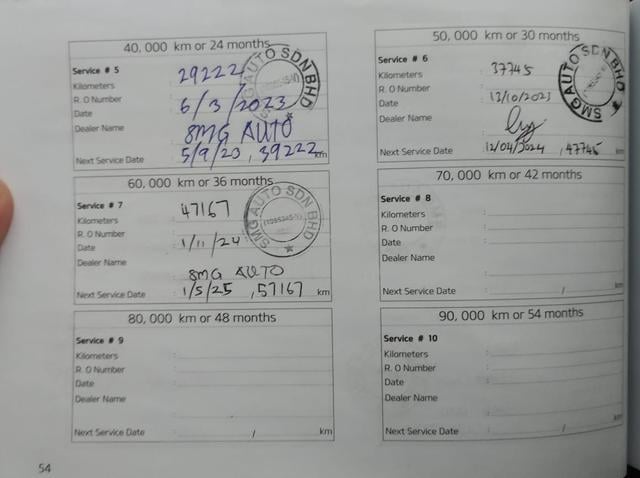 40, 000 km or 24 months
Service # 5
Kilometers 29222
R. O Number
Date 6/3/2023
Dealer Name
SMG AUTO
Next Service Date 5/9/20 , 39222 km
SMG AUTO SDN BHD
50, 000 km or 30 months
Service # 6
Kilometers : 37745
R. O Number :
Date : 12/10/2023
Dealer Name
Next Service Date : 12/04/2024 , 47745 km
SMG AUTO SDN BHD
60, 000 km or 36 months
Service # 7
Kilometers : 47167
R. O Number :
Date : 1/11/24
Dealer Name
SMG AUTO
Next Service Date : 1/5/25 , 57167 km
SMG AUTO SDN BHD
70, 000 km or 42 months
Service # 8
Kilometers :
R. O Number :
Date :
Dealer Name
Next Service Date : / km
80, 000 km or 48 months
Service # 9
Kilometers :
R. O Number :
Date :
Dealer Name
Next Service Date : / km
90, 000 km or 54 months
Service # 10
Kilometers :
R. O Number :
Date :
Dealer Name
Next Service Date : / km
54